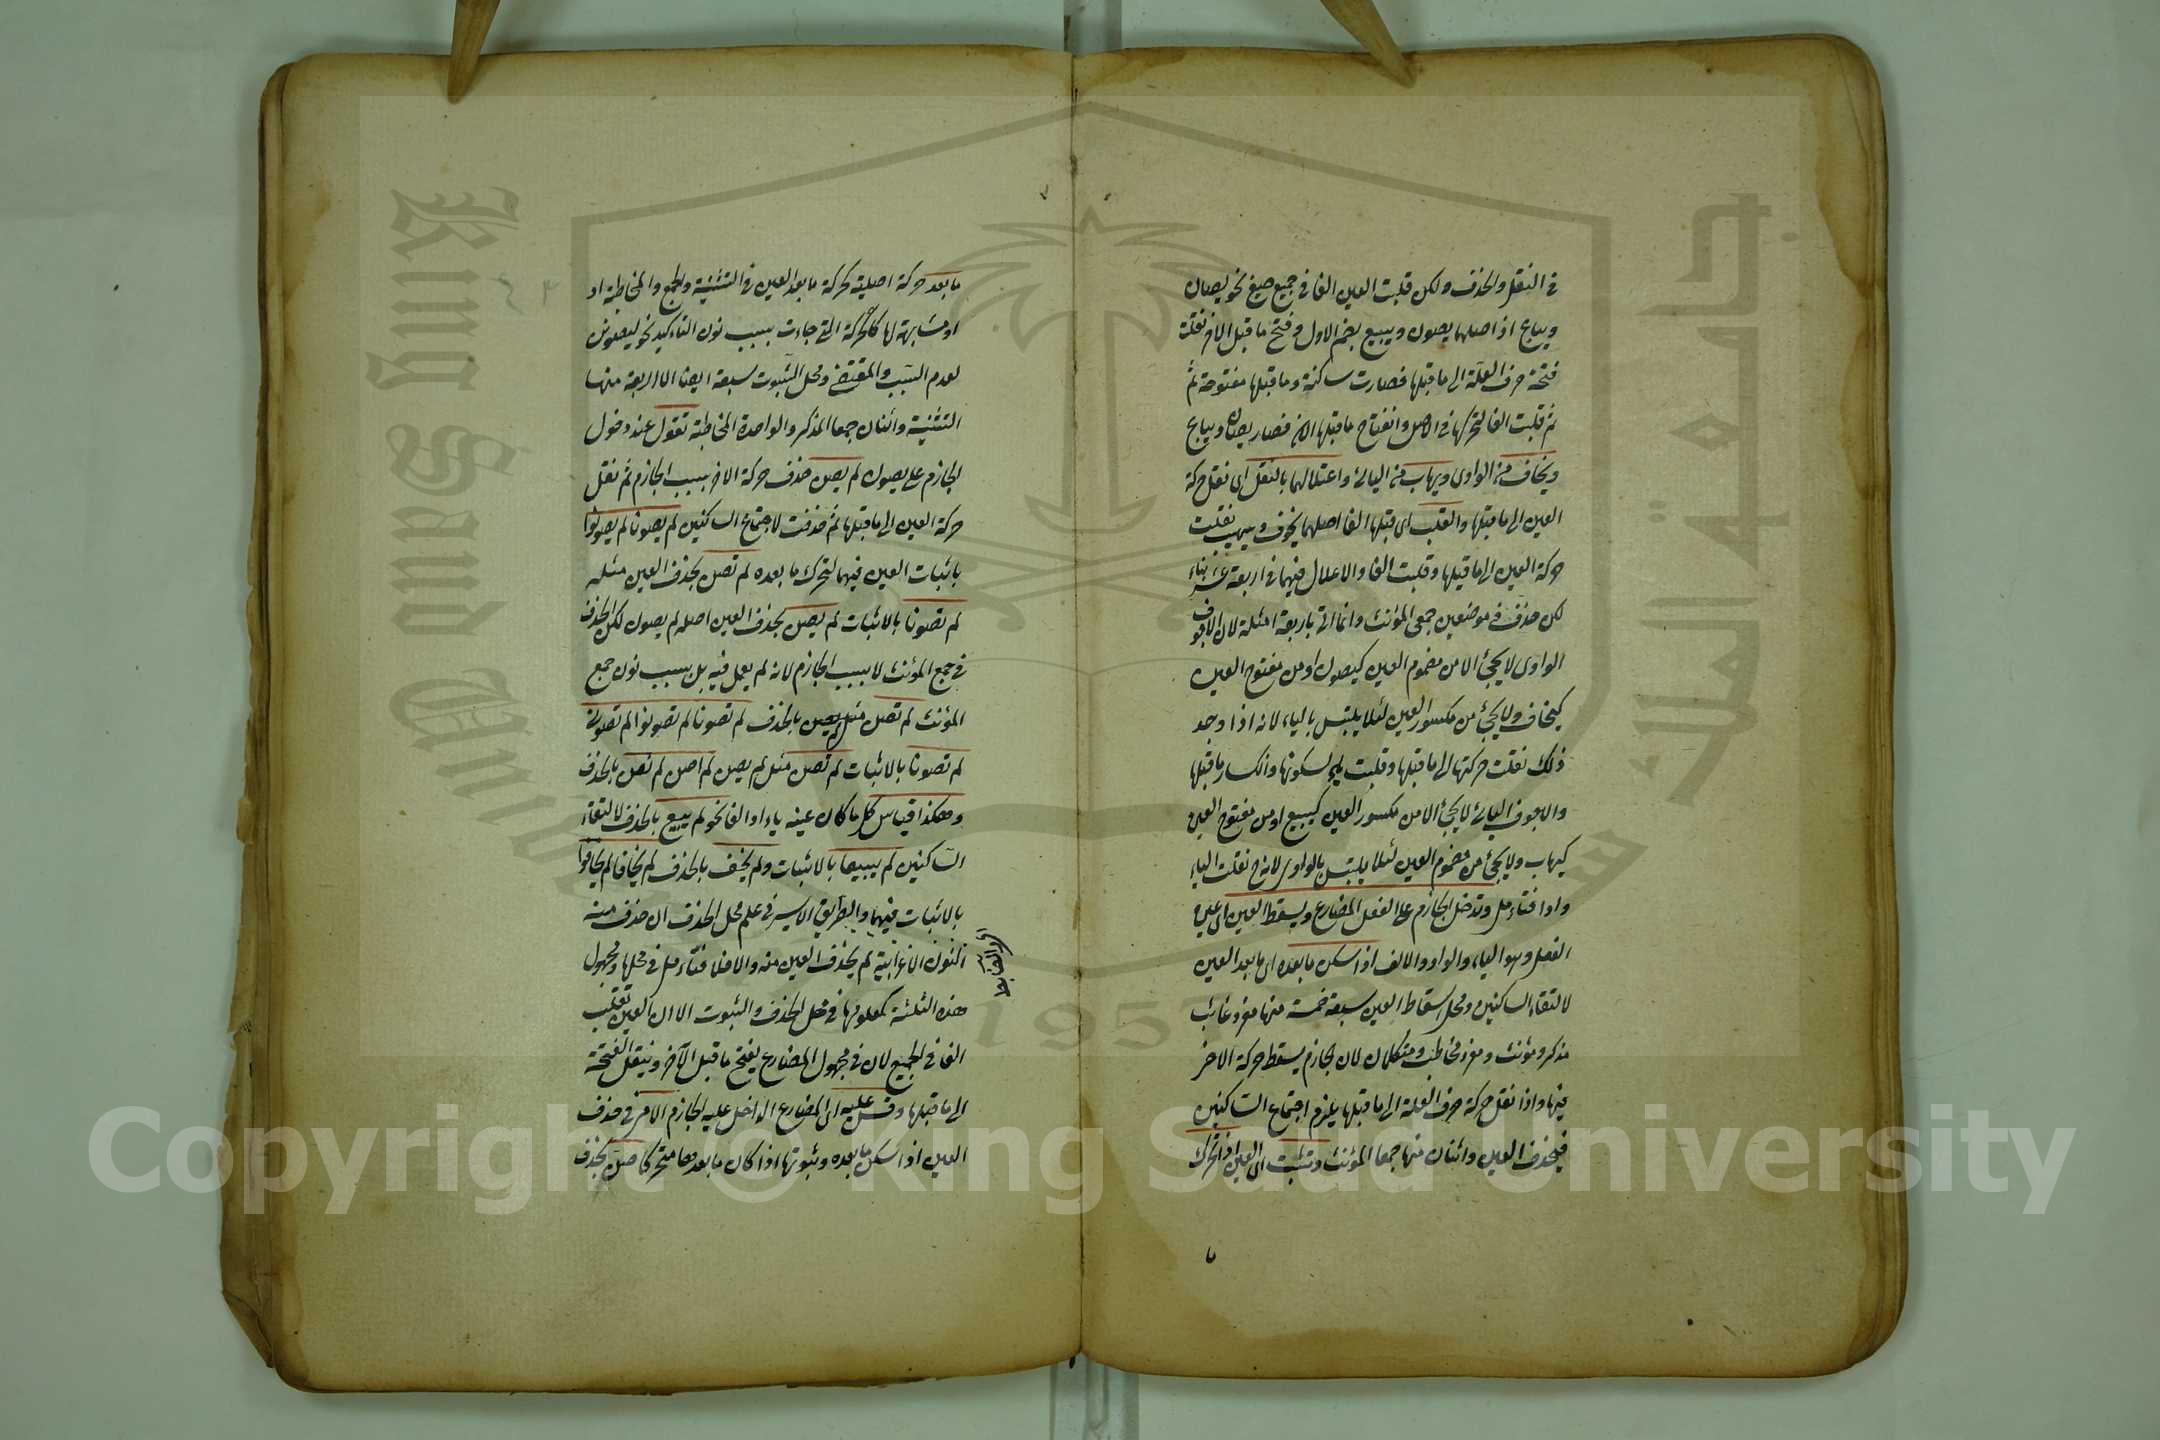 في النقل والحذف ولكن قلبت العين الفا في جميع صيغ نحو يصان
ويباع اذ اصلهما يصون ويبيع بضم الاول وفتح ما قبل الاخر نقلت
فتحة حرف العلة الى ما قبلها فصارت ساكنة وما قبلها مفتوحة ثم
ثم قلبت الفا لتحركها في الاصل وانفتاح ما قبلها الان فصار يصان ويباع
ويخاف من الواوى ويهاب من اليائى واعتلالهما بالنقل اى نقل حركة
العين الى ما قبلها والقلب اى قبلها الفا اصلهما يخوف ويهيب نقلت
حركة العين الى ما قبلها وقلبت الفا والاعلال فيهما في اربعة عشر بناء
لكن حذف في موضعين جمعى المؤنث وانما اتى باربعة امثلة لان الاجوف
الواوى لا يجئ الا من مضموم العين كيصون او من مفتوح العين
كيخاف ولا يجئ من مكسور العين لئلا يلتبس بالياء لانه اذا وجد
ذلك نقلت حركتها الى ما قبلها وقلبت ياء لسكونها وانكسار ما قبلها
والاجوف اليائى لا يجئ الا من مكسور العين كيبيع او من مفتوح العين
كيهاب ولا يجئ من مضموم العين لئلا يلتبس بالواوى لانه ح نقلت الياء
واوا فتأمل وتدخل الجازم على الفعل المضارع ويسقط العين اى عين
الفعل وهو الياء والواو والالف اذا سكن ما بعده اى ما بعد العين
لالتقاء الساكنين ومحل اسقاط العين سبعة خمسة منها مفرد غائب
مذكر ومؤنث ومفرد مخاطب ومتكلمان لان الجازم يسقط حركة الاخر
فيها واذا نقل حركة حرف العلة الى ما قبلها يلزم اجتماع الساكنين
فيحذف العين واثنان منها جمعا المؤنث وتثبت اى العين اذا تحرك
ما
ما بعد حركة اصلية كحركة ما بعد العين في التثنية والجمع والمخاطبة او
او مشابهة لها كالحركة التى جاءت بسبب نون التاكيد نحو ليصونن
لعدم السبب والمقتضى ومحل الثبوت سبعة ايضا الا اربعة منها
التثنية واثنان جمعا المذكر والواحدة المخاطبة تقول عند دخول
الجازم على يصون لم يصن حذف حركة الاخر بسبب الجازم ثم نقل
حركة العين الى ما قبلها ثم حذفت لاجتماع الساكنين لم يصونا لم يصونوا
باثبات العين فيهما لتحرك ما بعده لم تصن بحذف العين مثله
لم تصونا بالاثبات لم يصن بحذف العين اصله لم يصون لكن الحذف
في جمع المؤنث لا بسبب الجازم لانه لم يعمل فيه بل بسبب نون جمع
المؤنث لم تصن مثل لم يصن بالحذف لم تصونا لم تصونوا لم تصونى
لم تصونا بالاثبات لم تصن مثل لم يصن لم اصن لم نصن بالحذف
وهكذا قياس كل ما كان عينه ياء او الفا نحو لم يبع بالحذف لالتقاء
الساكنين لم يبيعا بالاثبات ولم يخف بالحذف لم يخافا لم يخافوا
بالاثبات فيهما والطريق الايسر في علم محل الحذف ان حذف منه
النون الاعرابية لم يحذف العين منه والا فلا فتأمل في محلها ومجهول
اى الضابط
هذه الثلثة كمعلومها في محل الحذف والثبوت الا ان العين تقلب
الفا في الجميع لان في مجهول المضارع يفتح ما قبل الآخر وينقل الفتحة
الى ما قبلها وقس عليه اى المضارع الداخل عليه الجازم الامر في حذف
العين اذا سكن ما بعده وثبوتها اذا كان ما بعدها متحركا صن بحذف